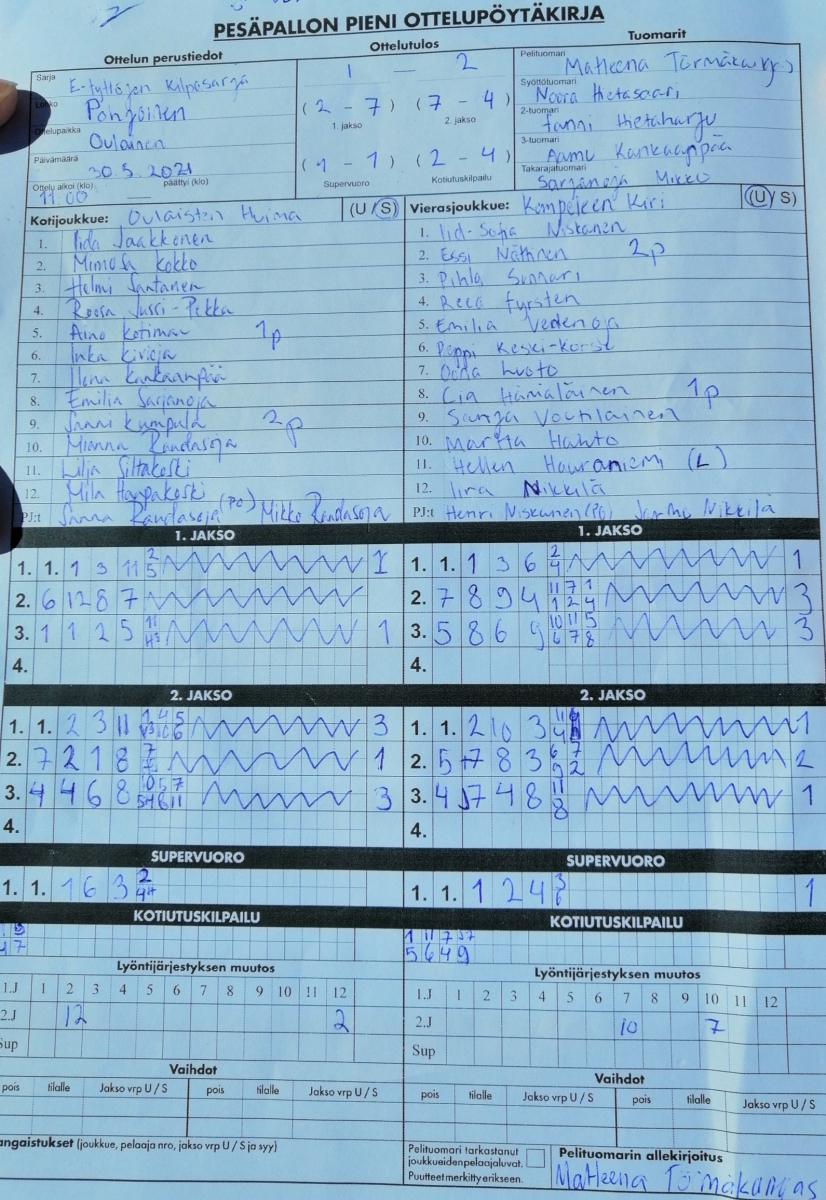 PESÄPALLON PIENI OTTELUPÖYTÄKIRJA
Ottelun perustiedot
Ottelutulos
Tuomarit
Sarja E-tyttöjen kilpasarja
Lohko Pohjoinen
Ottelupaikka Oulainen
Päivämäärä 30.5.2021
Ottelu alkoi (klo) päättyi (klo)
11.00 —
1 — 2
(2 - 7) (7 - 4)
1. jakso 2. jakso
(1 - 1) (2 - 4)
Supervuoro Kotiutuskilpailu
Pelituomari Matleena
Syöttötuomari Noora Hietasaari
2-tuomari Fanni Hietaharju
3-tuomari Aamu Kankaanpää
Takarajatuomari Sarjanoja Mikko
Kotijoukkue: Oulaisten Huima (U/S)
1. Iida Jaakkonen
2. Mimosa Kokko
3. Helmi Santanen
4. Roosa Jussi-Pekka
5. Aino Kotimaa 1p
6. Inka Kivioja
7. Kankaanpää
8. Emilia Sarjanoja
9. Sanni Kumpula 2p
10. Mianna Raudasoja
11. Lilja Siltakoski
12. Mila Haapakoski
PJ:t Sanna Raudasoja (PO) Mikko Raudasoja
Vierasjoukkue: Kempeleen Kiri (U/S)
1. Iid-Sofia Niskanen
2. Essi Näthnen 2p
3. Pihla Sunnari
4. Fyrsten
5. Emilia Vedenoja
6. Peppi Keski-Korsu
7. Oona Luoto
8. Cia Hämäläinen 1p
9. Sanja Voutilainen
10. Martta Hahto
11. Hellen Hauraniemi (L)
12. Iira Nikkilä
PJ:t Henri Niskanen (PO) Jarmo Nikkilä
1. JAKSO
1. 1. 1 3 11 2 5 1
2. 6 12 8 7
3. 1 1 2 5 11 1
4.
1. JAKSO
1. 1. 1 3 6 2 4 1
2. 7 8 9 4 11 7 1 1 2 4 3
3. 5 8 6 9 10 11 5 6 7 8 3
4.
2. JAKSO
1. 1. 2 3 11 3
2. 7 2 1 8 7 1
3. 4 4 6 8 3
4.
2. JAKSO
1. 1. 2 10 3 1
2. 5 7 8 3 6 7 9 2 2
3. 4 7 4 8 11 8 1
4.
SUPERVUORO
1. 1. 1 6 3 2
SUPERVUORO
1. 1. 1 2 4 1
KOTIUTUSKILPAILU
4 7
KOTIUTUSKILPAILU
1 11 7
5 6 4 9
Lyöntijärjestyksen muutos
1.J 1 2 3 4 5 6 7 8 9 10 11 12
2.J 12 2
Sup
Lyöntijärjestyksen muutos
1.J 1 2 3 4 5 6 7 8 9 10 11 12
2.J 10 7
Sup
Vaihdot
pois tilalle Jakso vrp U / S pois tilalle Jakso vrp U / S
Vaihdot
pois tilalle Jakso vrp U / S pois tilalle Jakso vrp U / S
angaistukset (joukkue, pelaaja nro, jakso vrp U / S ja syy)
Pelituomari tarkastanut
joukkueiden pelaajaluvat.
Puutteet merkitty erikseen.
Pelituomarin allekirjoitus
Matleena